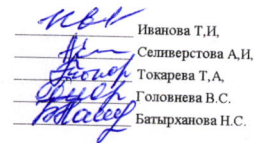 Иванова Т,И,
Селиверстова А,И,
Токарева Т,А,
Головнева В.С.
Батырханова Н.С.